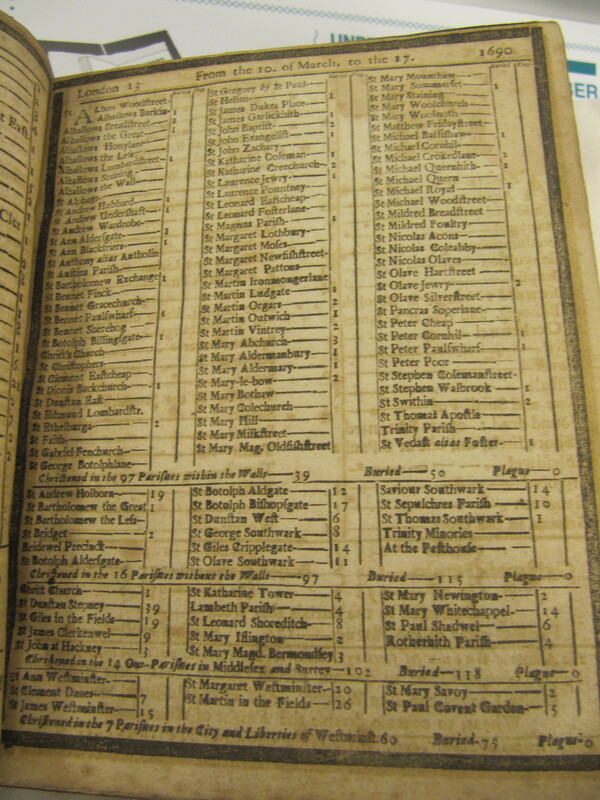 London 13 From the 10. of March, to the 17. 1690.
St Albans Woodstreet
Alhallows Barkin
Alhallows Breadstreet 1
Alhallows the Great 1
Alhallows Honylane
Alhallows the Less
Alhallows Lumbardstreet 1
Alhallows Staining
Alhallows the Wall
St Alphage
St Andrew Hubbard 1
St Andrew Undershaft 1
St Andrew Wardrobe
St Ann Aldersgate
St Ann Blackfriers
St Anthony alias Antholin
St Austins Parish
St Bartholomew Exchange
St Bennet Finck
St Bennet Gracechurch
St Bennet Paulswharf
St Bennet Sherehog
St Botolph Billingsgate
Christ's Church
St Christophers
St Clement Eastcheap
St Dionis Backchurch 1
St Dunstan East
St Edmund Lombardstr.
St Ethelburga 2
St Faith
St Gabriel Fenchurch
St George Botolphlane
St Gregory by St Paul
St Hellen
St James Dukes Place
St James Garlickhith
St John Baptist
St John Evangelist
St John Zachary
St Katharine Coleman
St Katharine Creechurch
St Laurence Jewry
St Laurence Pountney
St Leonard Eastcheap
St Leonard Fosterlane
St Magnus Parish
St Margaret Lothbury
St Margaret Moses
St Margaret Newfishstreet
St Margaret Pattons
St Martin Ironmongerlane
St Martin Ludgate
St Martin Orgars 2
St Martin Outwich 1
St Martin Vintrey 2
St Mary Abchurch 3
St Mary Aldermanbury 1
St Mary Aldermary 1
St Mary-le-bow 2
St Mary Bothaw
St Mary Colechurch
St Mary Hill
St Mary Milkstreet
St Mary Mag. Oldfishstreet
St Mary Mounthaw
St Mary Sommerset 1
St Mary Staining
St Mary Woolchurch
St Mary Woolnoth
St Matthew Fridaystreet
St Michael Bassishaw 1
St Michael Cornhil
St Michael Crokedlane 1
St Michael Queenhith 1
St Michael Quern
St Michael Royal 1
St Michael Woodstreet
St Mildred Breadstreet
St Mildred Poultry
St Nicolas Acons
St Nicolas Coleabby
St Nicolas Olaves
St Olave Hartstreet
St Olave Jewry 2
St Olave Silverstreet
St Pancras Soperlane
St Peter Cheap
St Peter Cornhil 1
St Peter Paulswharf 1
St Peter Poor
St Stephen Colemanstreet
St Stephen Walbrook 1
St Swithin 2
St Thomas Apostle
Trinity Parish
St Vedast alias Foster 1
Christened in the 97 Parishes within the Walls 39 Buried 50 Plague 0
St Andrew Holborn 19
St Bartholomew the Great 1
St Bartholomew the Less
St Bridget 2
Bridewel Precinct
St Botolph Aldersgate
St Botolph Aldgate 12
St Botolph Bishopsgate 17
St Dunstan West 6
St George Southwark 8
St Giles Cripplegate 14
St Olave Southwark 11
Saviour Southwark 14
St Sepulchres Parish 10
St Thomas Southwark 1
Trinity Minories
At the Pesthouse
Christened in the 16 Parishes without the Walls 97 Buried 115 Plague 0
Christ Church 3
St Dunstan Stepney 39
St Giles in the Fields 19
St James Clerkenwel 9
St John at Hackney 3
St Katharine Tower 4
Lambeth Parish 4
St Leonard Shoreditch 8
St Mary Islington 2
St Mary Magd. Bermondsey 3
St Mary Newington 2
St Mary Whitechappel 14
St Paul Shadwel 6
Rotherhith Parish 4
Christened in the 14 Out-Parishes in Middlesex and Surrey 102 Buried 118 Plague 0
St Ann Westminster
St Clement Danes 7
St James Westminster 15
St Margaret Westminster 20
St Martin in the Fields 26
St Mary Savoy 2
St Paul Covent Garden 5
Christened in the 7 Parishes in the City and Liberties of Westminst. 60 Buried 75 Plague 0